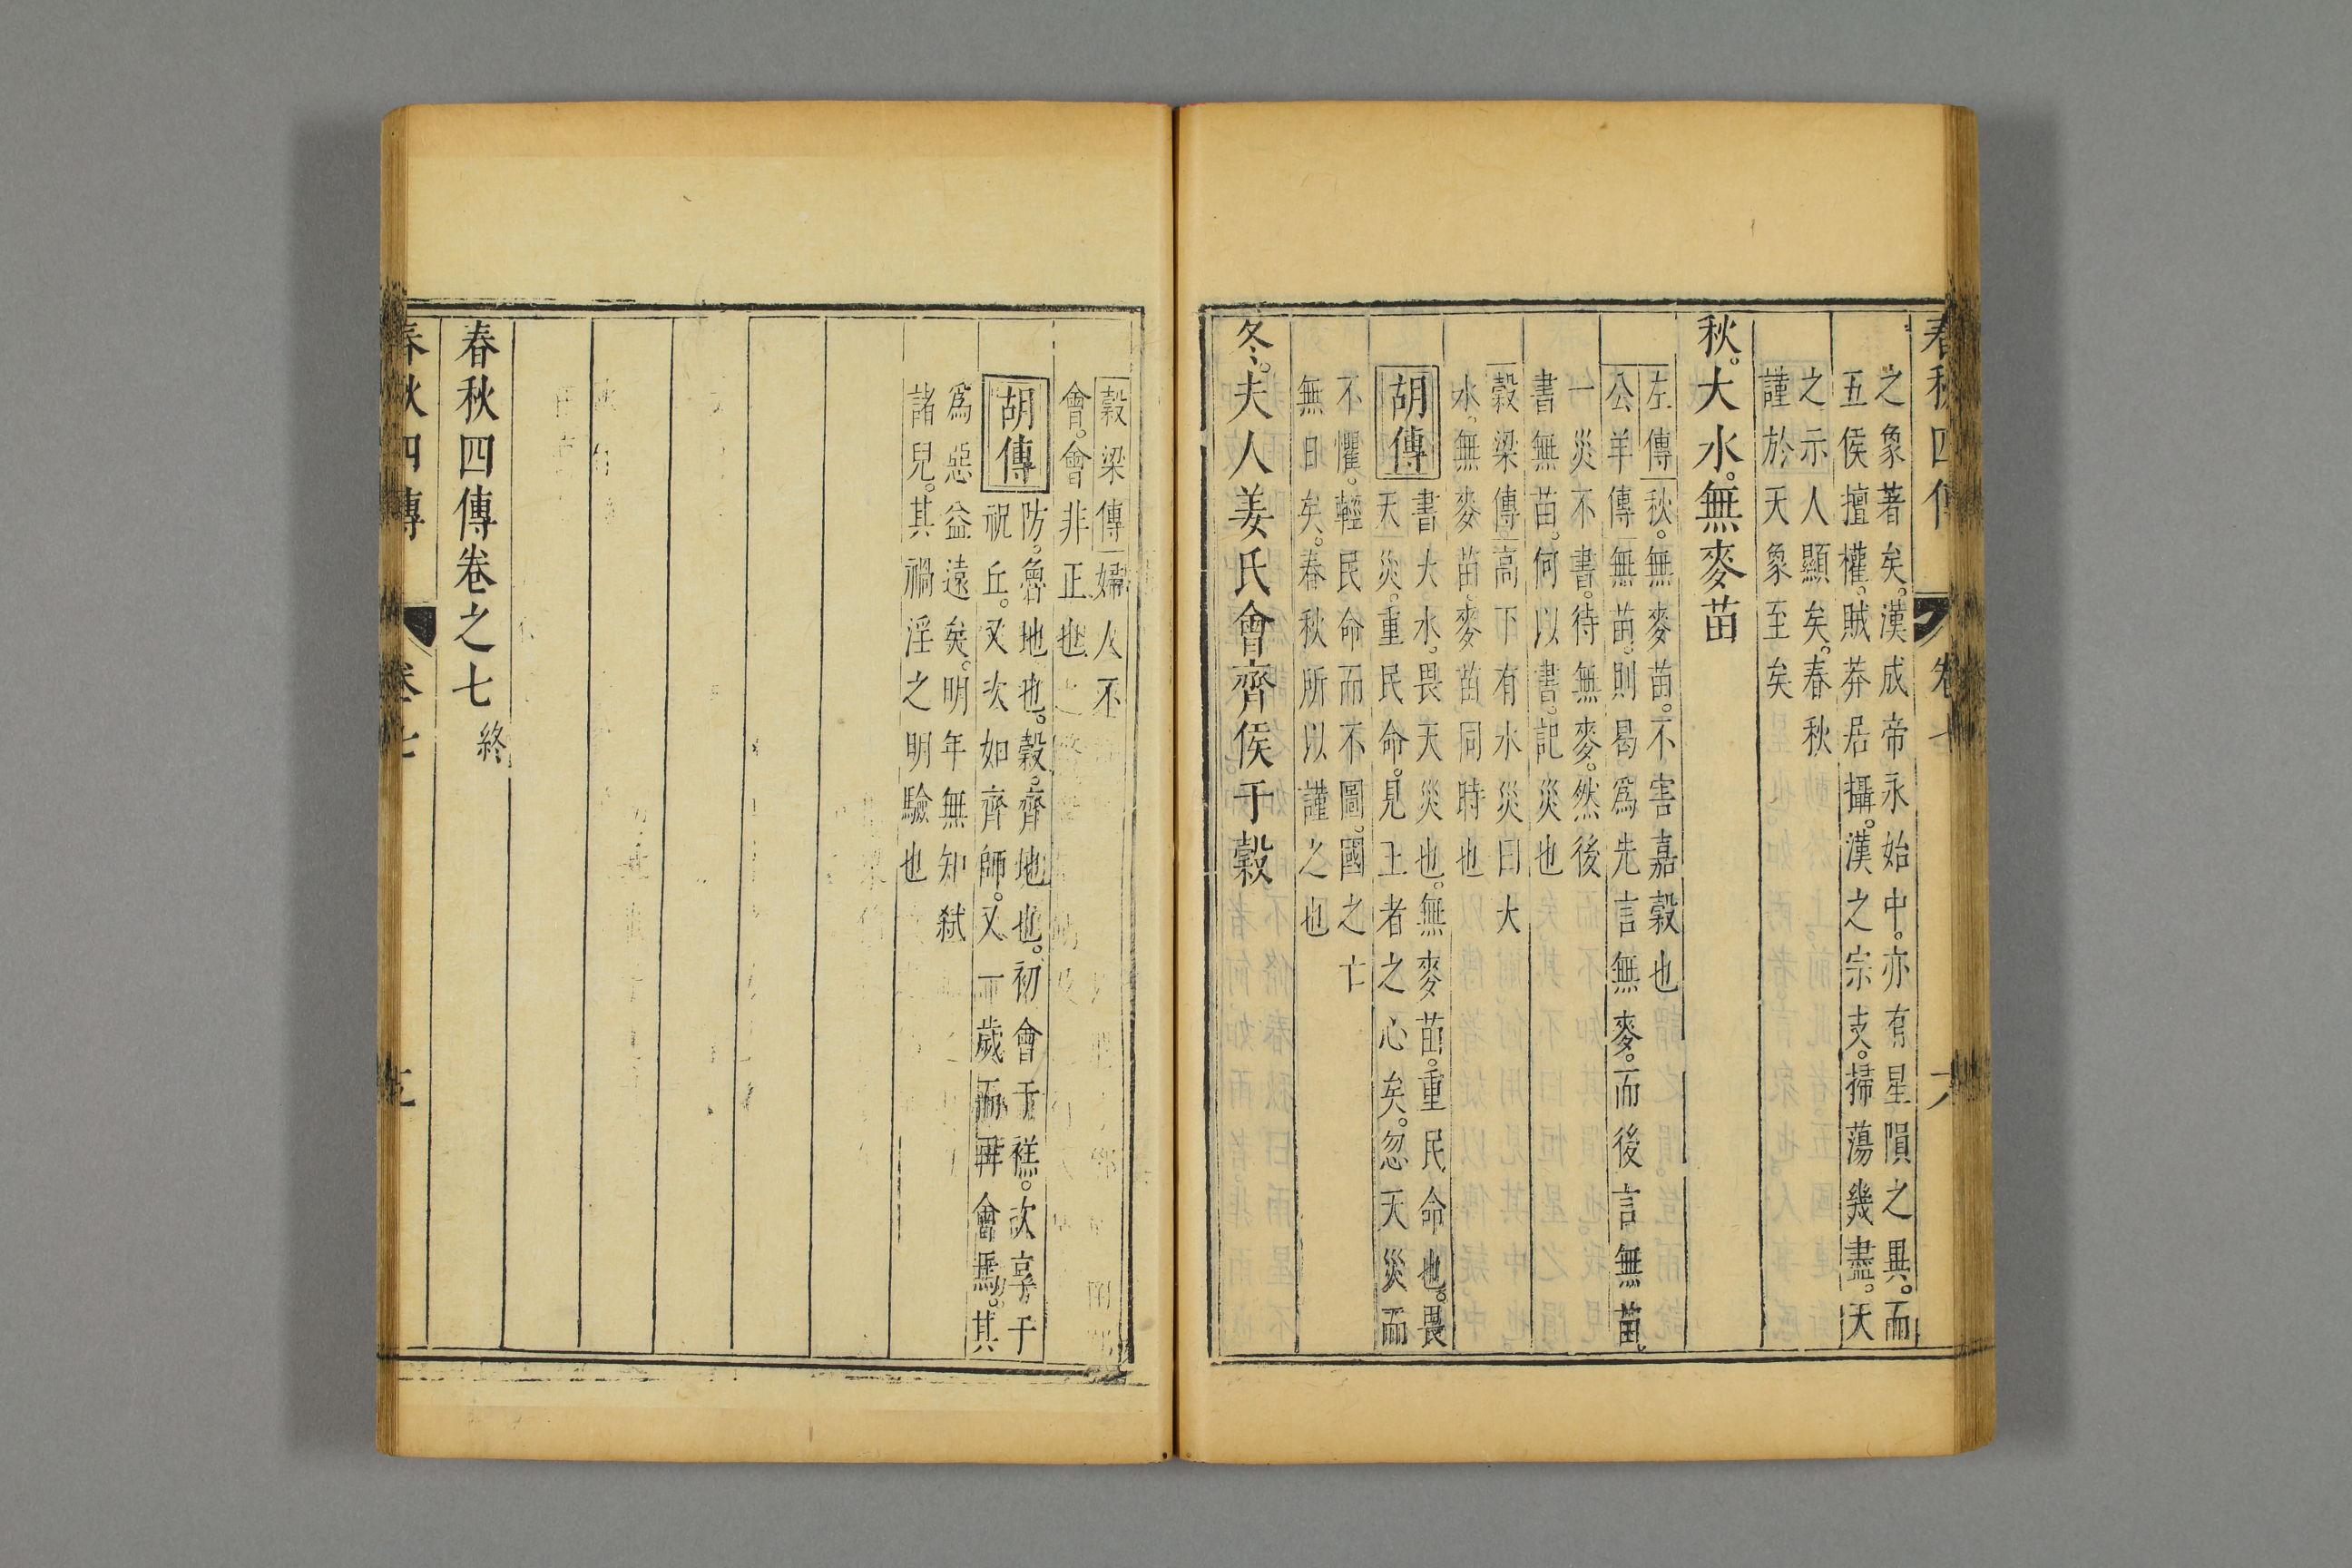 之象著矣。漢成帝永始中。亦有星隕之異。而
五侯擅權。賊莽居攝。漢之宗支。掃蕩幾盡。天
之示人顯矣。春秋
謹於天象至矣
秋。大水。無麥苗
左傳秋。無麥苗。不害嘉穀也
公羊傳無苗。則曷爲先言無麥。而後言無苗。
一災不書。待無麥。然後
書無苗。何以書。記災也
穀梁傳高下有水災曰大
水。無麥苗。麥苗同時也
胡傳
書大水。畏天災也。無麥苗。重民命也。畏
天災。重民命。見王者之心矣。忽天災而
不懼。輕民命而不圖。國之亡
無日矣。春秋所以謹之也
冬。夫人姜氏會齊侯于穀
穀梁傳婦人不
會。會非正也
胡傳
防。魯地也。穀。齊地也。初會于禚。次享于
祝丘。又次如齊師。又一歲而再會焉。其
爲惡益遠矣。明年無知弒
諸兒。其禍淫之明驗也
春秋四傳卷之七
終
春秋四傳
卷七